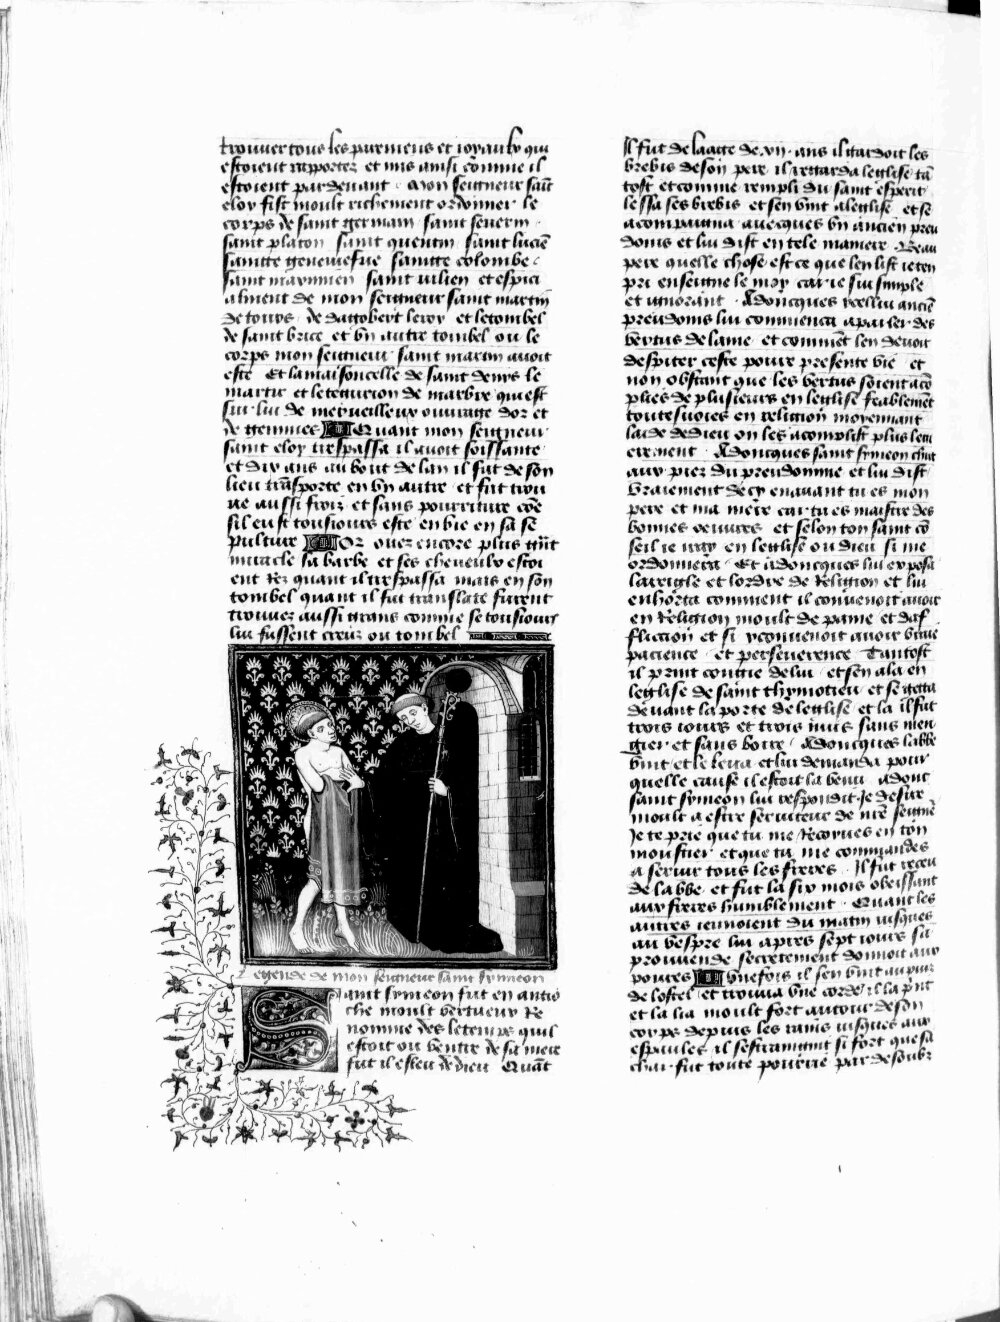 trouver tous les paremens et ioyaulx qui
estoient raportez et mis ainsi cõmme il
estoient par deuant. Mon seigneur saĩt
eloy fist moult richement ordonner le
corps de saint germain saint seuerin.
saint platon saint quentin saint luciẽ
saintte geneuiefue saintte colombe.
saint maximien saint iulien et espici
alment de mon seigneur saint martin
de tours. de dagobert le roy et le tombel
de saint brice et vn autre tombel ou le
corps mon seigneur saint martin auoit
este Et la maisoncelle de saint denys le
martir et le tegurion de marbre qui est
sur lui de merueilleux ouurage dor et
de gemmes Quant mon seigneur
saint eloy trespassa il auoit soissante
et dix ans au bout de lan il fut de son
lieu trãsporte en vn autre et fut trou
ue aussi froiz et sans pourriture cõe
sil eust tousiours este en vie en sa se
pulture Or ouez encore plus grãt
miracle sa barbe et ses cheueulx estoi
ent rez quant il trespassa mais en son
tombel quant il fut translate furent
trouuez aussi grans comme se tousiours
lui fussent creuz ou tombel
Legende de mon seigneur saint symeon
Saint symeon fut en antio
che moult vertueux re
nomme des le temps quil
estoit ou ventre de sa mere
fut il esleu de dieu Quãt
Il fut de laage de xij. ans il gardoit les
brebis de son pere il regarda leglise tã
tost et comme rempli du saint esperit
lessa ses brebis et sen vint a leglise et se
acompaigna auecques vn ancien preu
doms et lui dist en tele maniere. Beau
pere quelle chose est ce que len list ie ten
pri enseigne le moy car ie sui simple
et ignorant. Adoncques icellui anciẽ
preudoms lui commenca a parler des
vertus de lame et commẽt len deuoit
despiter ceste poure presente vie et
non obstant que les vertus soient acõ
plies de plusieurs en leglise feablement
toutesuoies en religion moyennant
laide de dieu on les acomplist plus lega
erement. Adoncques saint symeon cheut
aux piez du preudomme et lui dist
vraiement de cy enauant tu es mon
pere et ma mere car tu es maistre des
bonnes oeuures et selon ton saint cõ
seil ie iray en leglise ou dieu si me
ordonnera. Et adoncques lui exposa
la reigle et lordre de religion et lui
enhorta comment il conuenoit auoir
en religion moult de paine et daf
fliccion et si y conuenoit auoir vraie
pacience et perseuerence Tantost
il print congie de lui et sen ala en
leglise de saint thymotieu et se getta
deuant la porte de leglise et la il fut
trois iours et trois nuis sans men
gier et sans boire. Adoncques labbe
vint et le leua et lui demanda pour
quelle cause il estoit la venu adont
saint symeon lui respondit Je desire
moult a estre seruiteur de nr̃e seignr̃
Je te prie que tu me recoyues en ton
moustier et que tu me commandes
a seruir tous les freres. Il fut receu
de labbe et fut la six mois obeissant
aux freres humblement. Quant les
autres ieunoient du matin iusques
au vespre lui apres sept iours sa
prouuende secretement donnoit aux
poures Vne fois il sen vint au puis
de lostel et trouua vne corde il la prit
et la lia moult fort autour de son
corps depuis les rains iusques aux
espaules il sestraingnit si fort que sa
char fut toute pourrie par desoubz